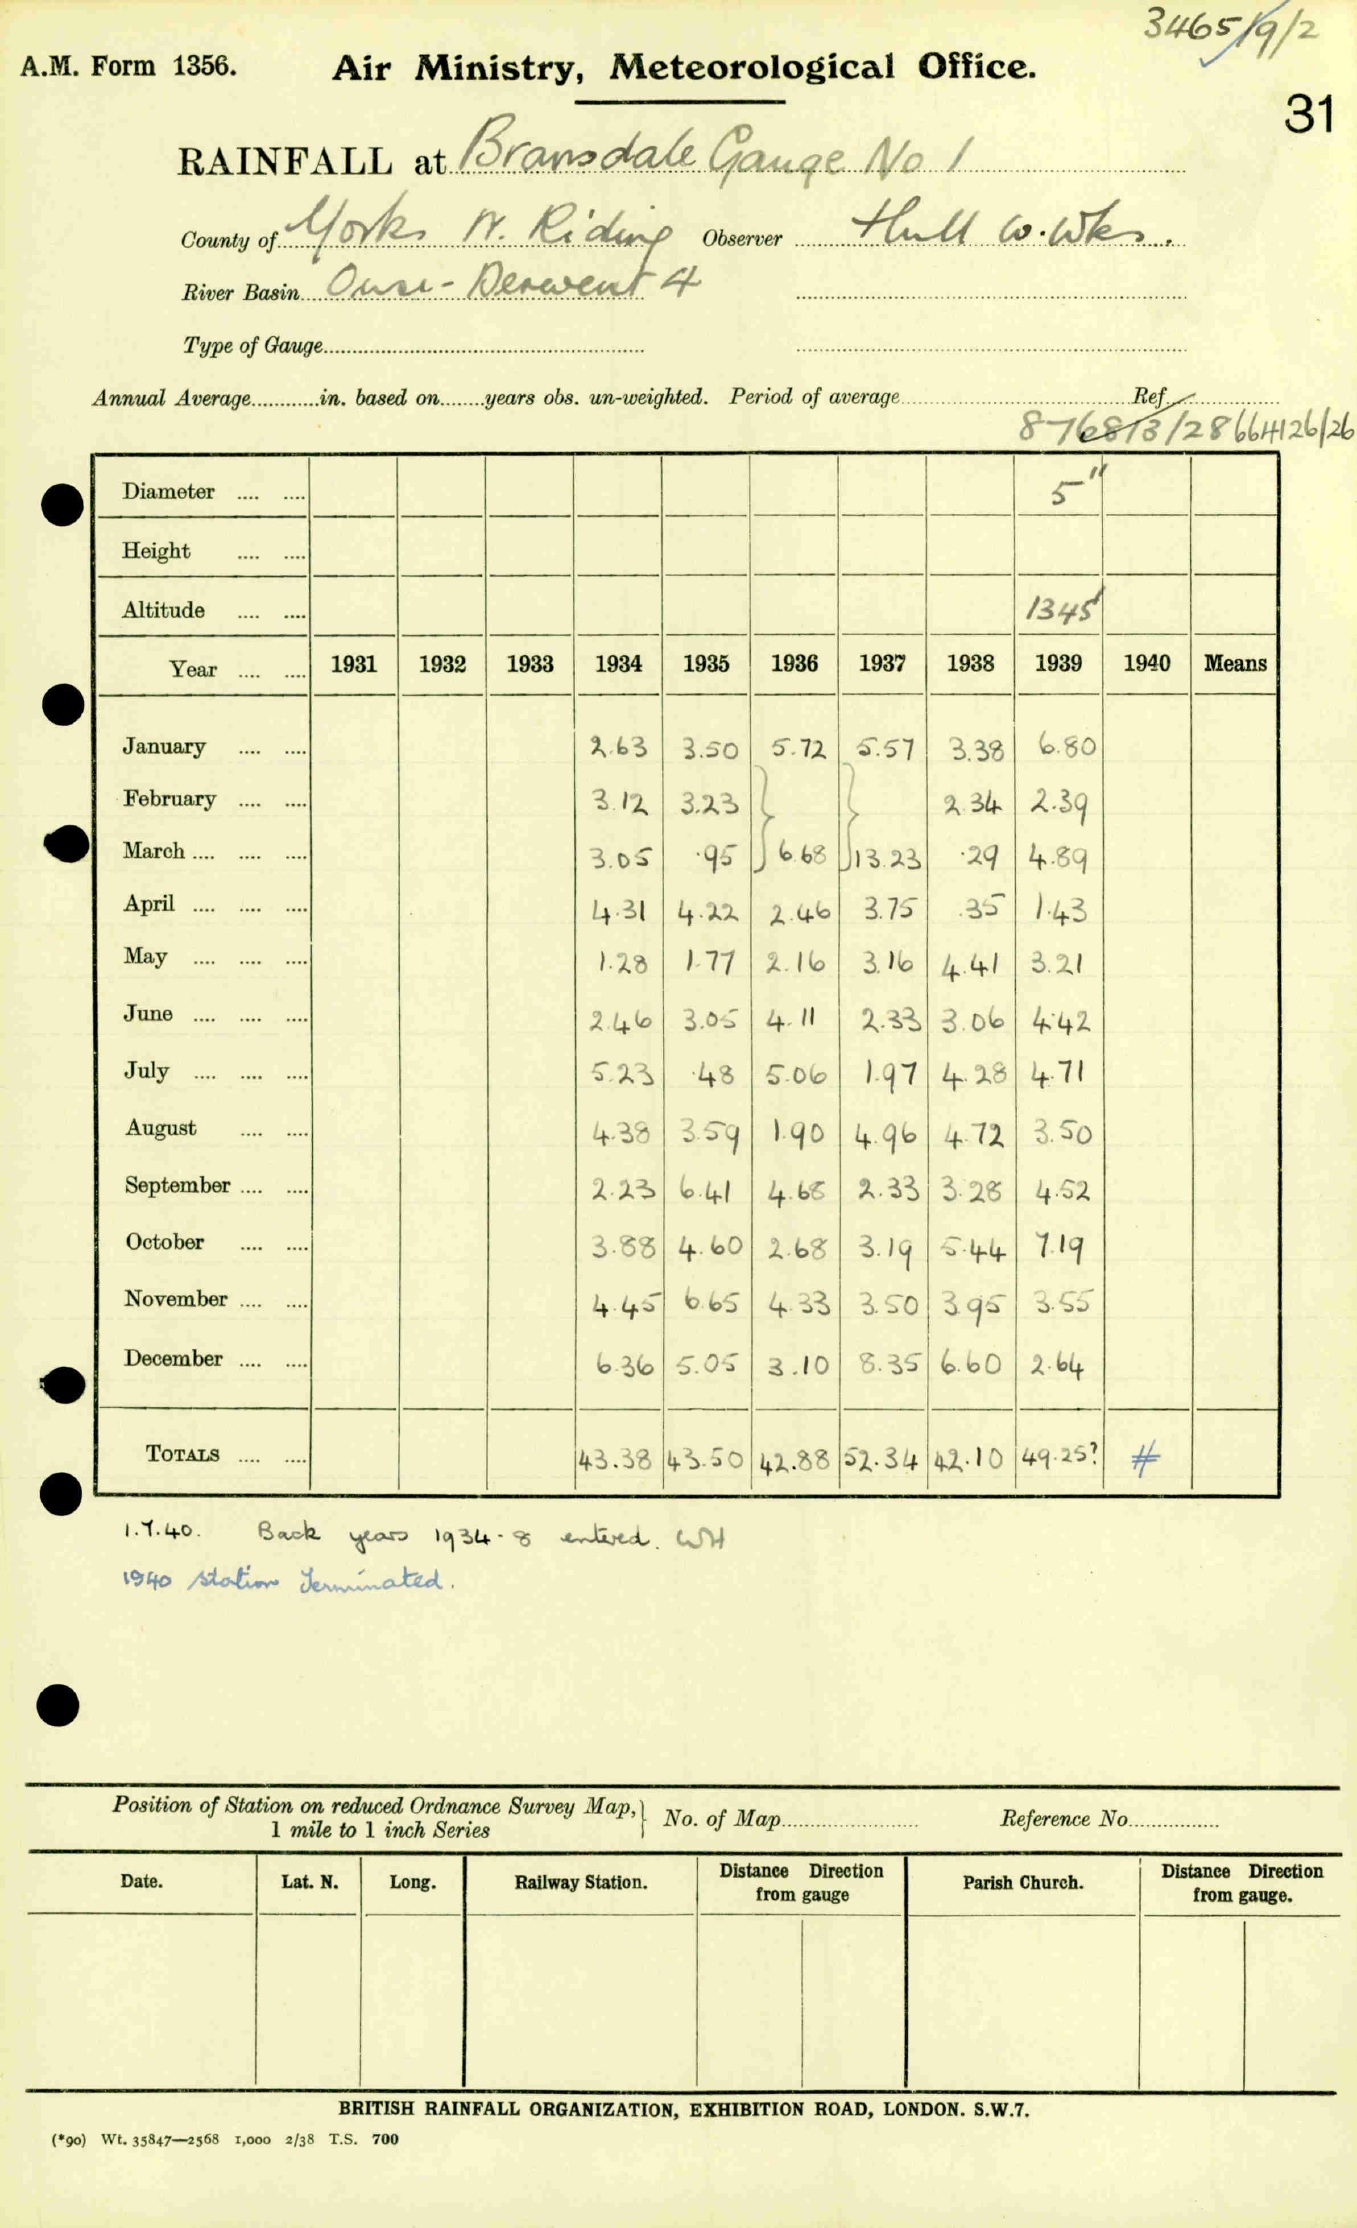 3465/9/2
A.M. Form 1356.
Air Ministry, Meteorological Office.
31
RAINFALL at Bransdale Gauge No 1
County of Yorks N. Riding Observer Hull W. Wks.
River Basin Ouse - Derwent 4
Type of Gauge
Annual Average in. based on years obs. un-weighted. Period of average Ref
664126/26
Diameter 5"
Height
Altitude 1345'
Year 1931 1932 1933 1934 1935 1936 1937 1938 1939 1940 Means
January 2.63 3.50 5.72 5.57 3.38 6.80
February 3.12 3.23 } } 2.34 2.39
March 3.05 .95 6.68 13.23 .29 4.89
April 4.31 4.22 2.46 3.75 .35 1.43
May 1.28 1.77 2.16 3.16 4.41 3.21
June 2.46 3.05 4.11 2.33 3.06 4.42
July 5.23 .48 5.06 1.97 4.28 4.71
August 4.38 3.59 1.90 4.96 4.72 3.50
September 2.23 6.41 4.68 2.33 3.28 4.52
October 3.88 4.60 2.68 3.19 5.44 7.19
November 4.45 6.65 4.33 3.50 3.95 3.55
December 6.36 5.05 3.10 8.35 6.60 2.64
TOTALS 43.38 43.50 42.88 52.34 42.10 49.25? #
1.7.40. Back years 1934-8 entered. WH
1940 station terminated.
Position of Station on reduced Ordnance Survey Map, } No. of Map Reference No.
1 mile to 1 inch Series
Date. Lat. N. Long. Railway Station. Distance Direction from gauge Parish Church. Distance Direction from gauge.
BRITISH RAINFALL ORGANIZATION, EXHIBITION ROAD, LONDON. S.W.7.
(*90) Wt. 35847—2568 1,000 2/38 T.S. 700